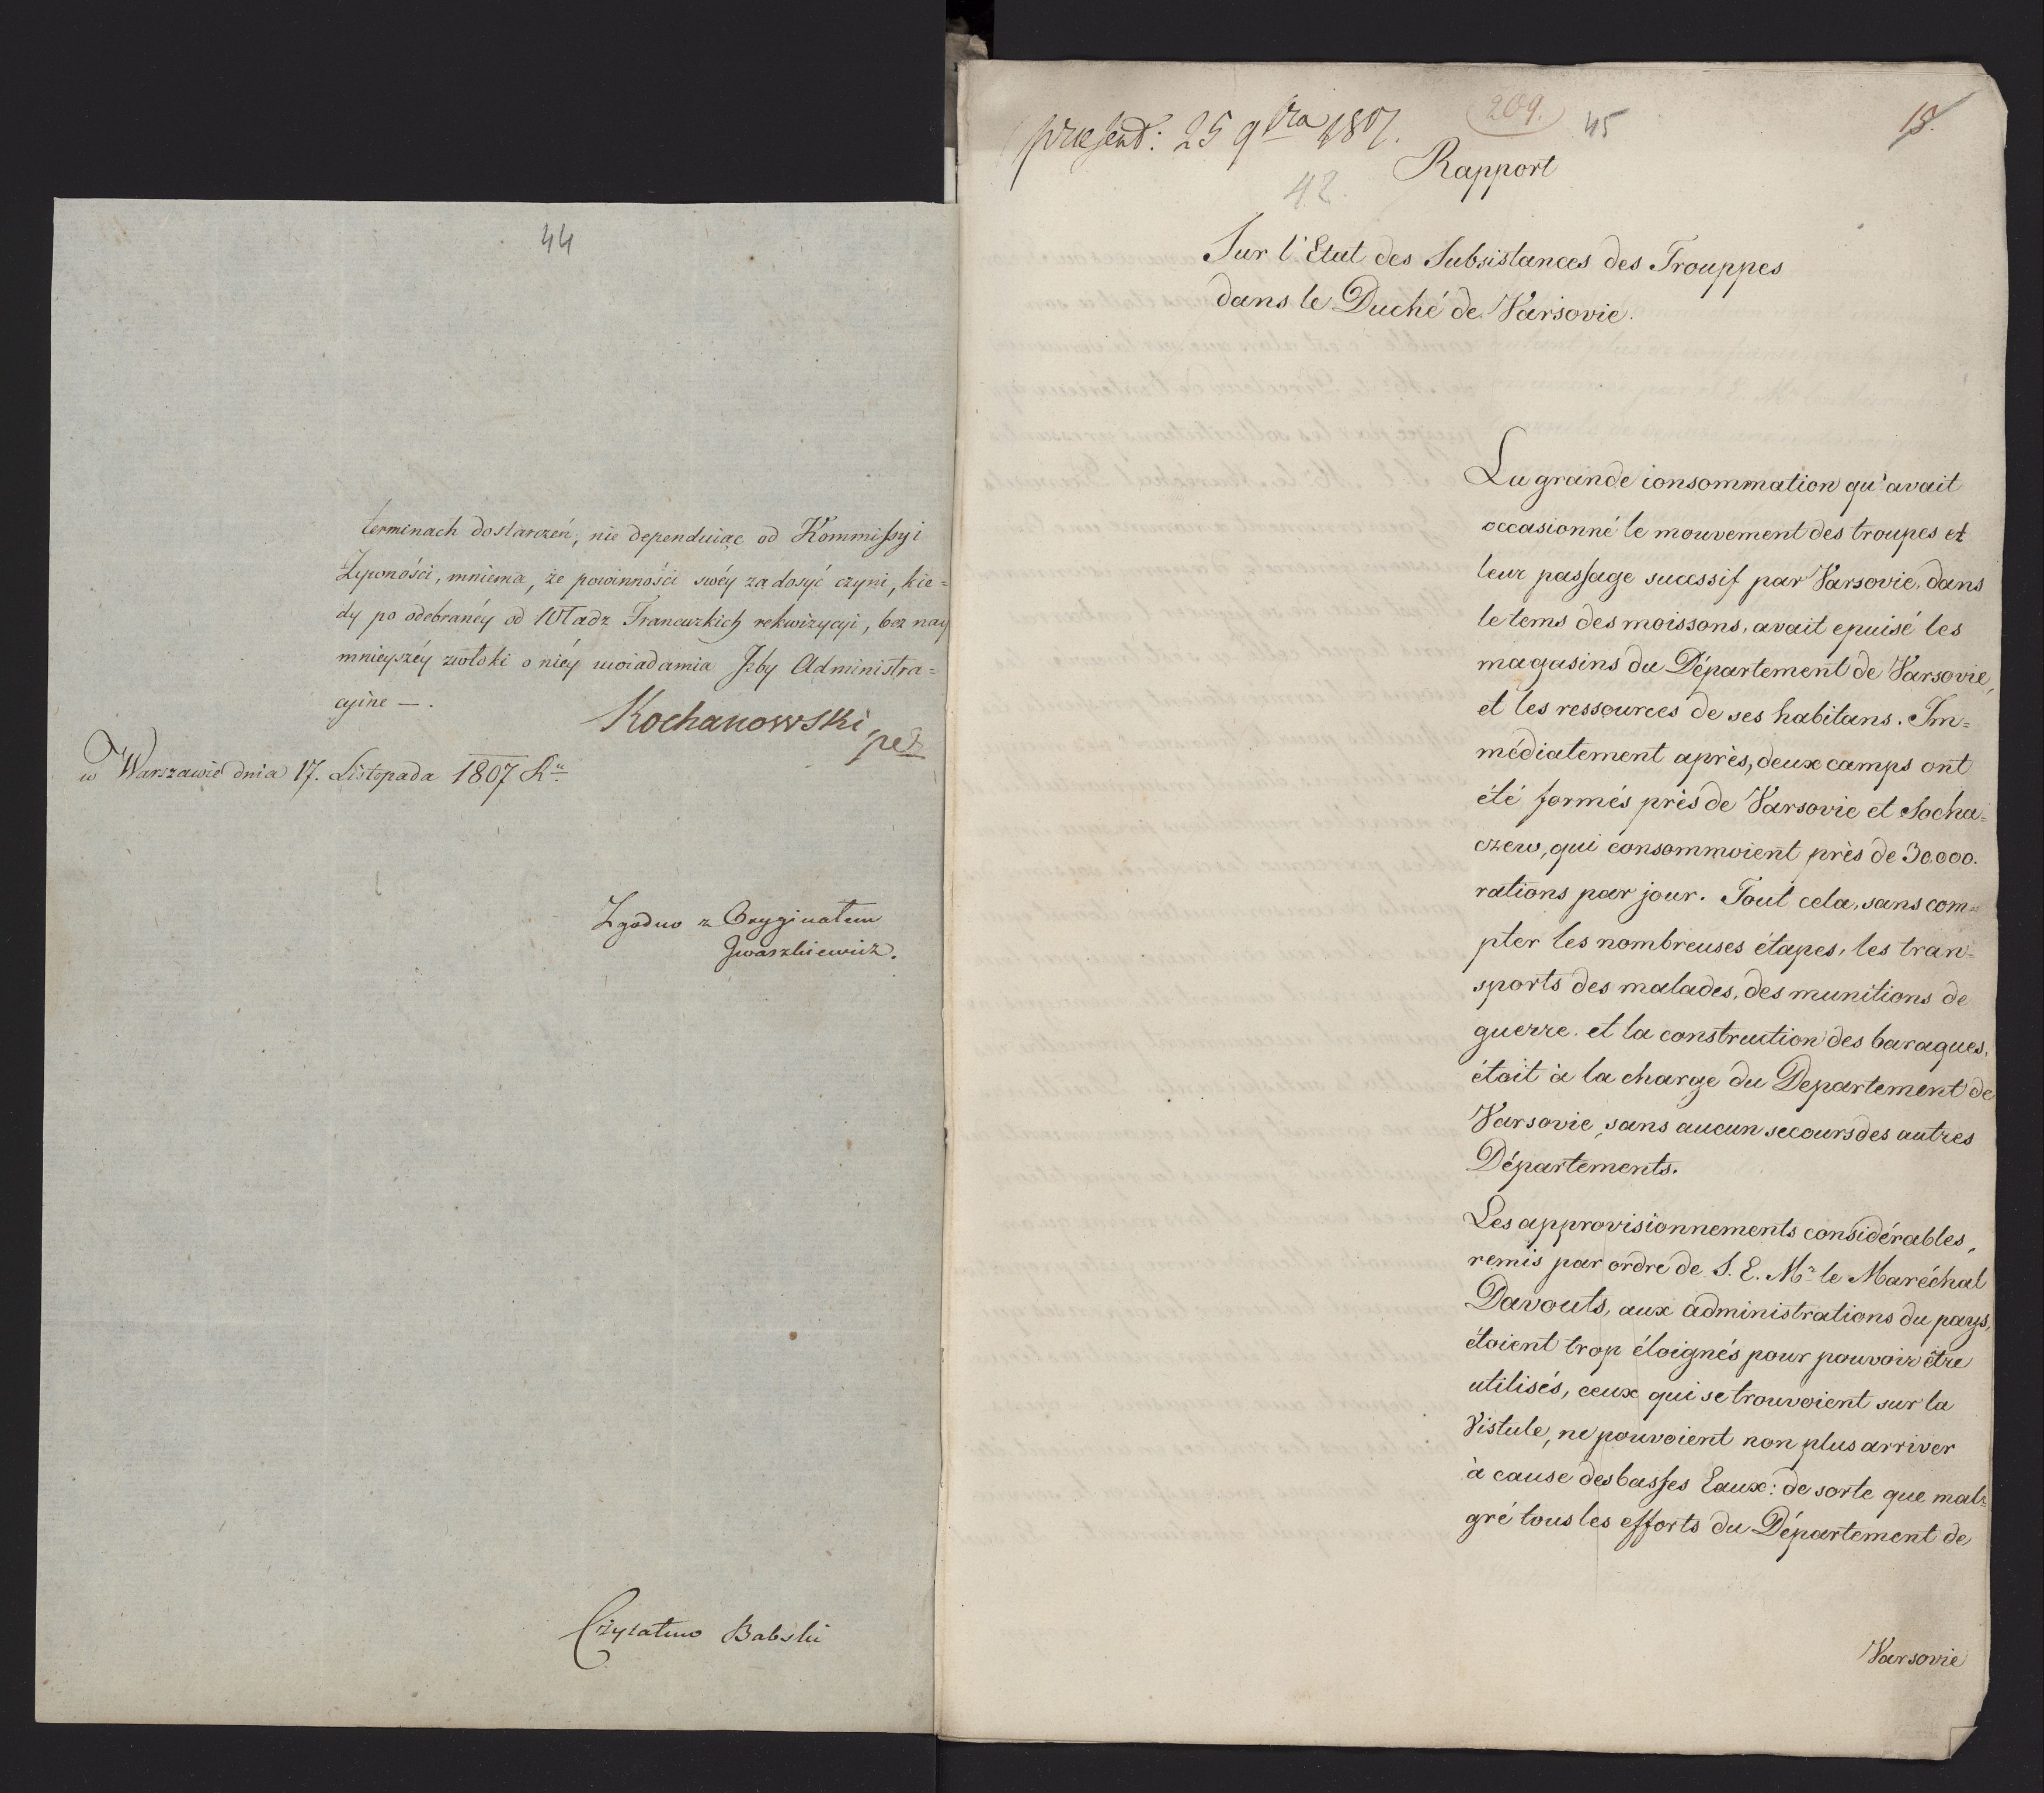 44
terminach dostarczeń, nie dependuiąc od Kommissyi
Żywności, mniema, że powinności swéy zadosyć czyni, kie=
dy po odebranéy od Władz Francuzkich rekwizycyi, bez nay
mnieyszéy zwłoki o niéy uwiadamia Izby Administra=
cyine — .
Kochanowski
w Warszawie dnia 17. Listopada 1807 Ru
Zgodno z Oryginałem
Iwaszkiewicz.
Czytatno Babski
praesent: 25 9bra 1807.
209.
45
18.
42.
Rapport
Sur l'Etat des Subsistances des Trouppes
dans le Duché de Varsovie.
La grande consommation qu'avait
occasionné le mouvement des troupes et
leur passage sucessif par Varsovie, dans
le tems des moissons, avait epuisé les
magasins du Département de Varsovie,
et les ressources de ses habitans. Im=
médiatement après, deux camps ont
été formés près de Varsovie et Socha=
czew, qui consommoient près de 30,000.
rations par jour. Tout cela, sans com=
pter les nombreuses étapes, les tran=
sports des malades, des munitions de
guerre et la construction des baraques,
étoit à la charge du Departement de
Varsovie, sans aucun secours des autres
Départements.
Les approvisionnements considérables,
remis par ordre de S. E. Mr le Maréchal
Davouts, aux administrations du pays,
étoient trop éloignés pour pouvoir être
utilisés, ceux qui se trouvoient sur la
Vistule, ne pouvoient non plus arriver
à cause des basses Eaux: de sorte que mal=
gré tous les efforts du Département de
Varsovie